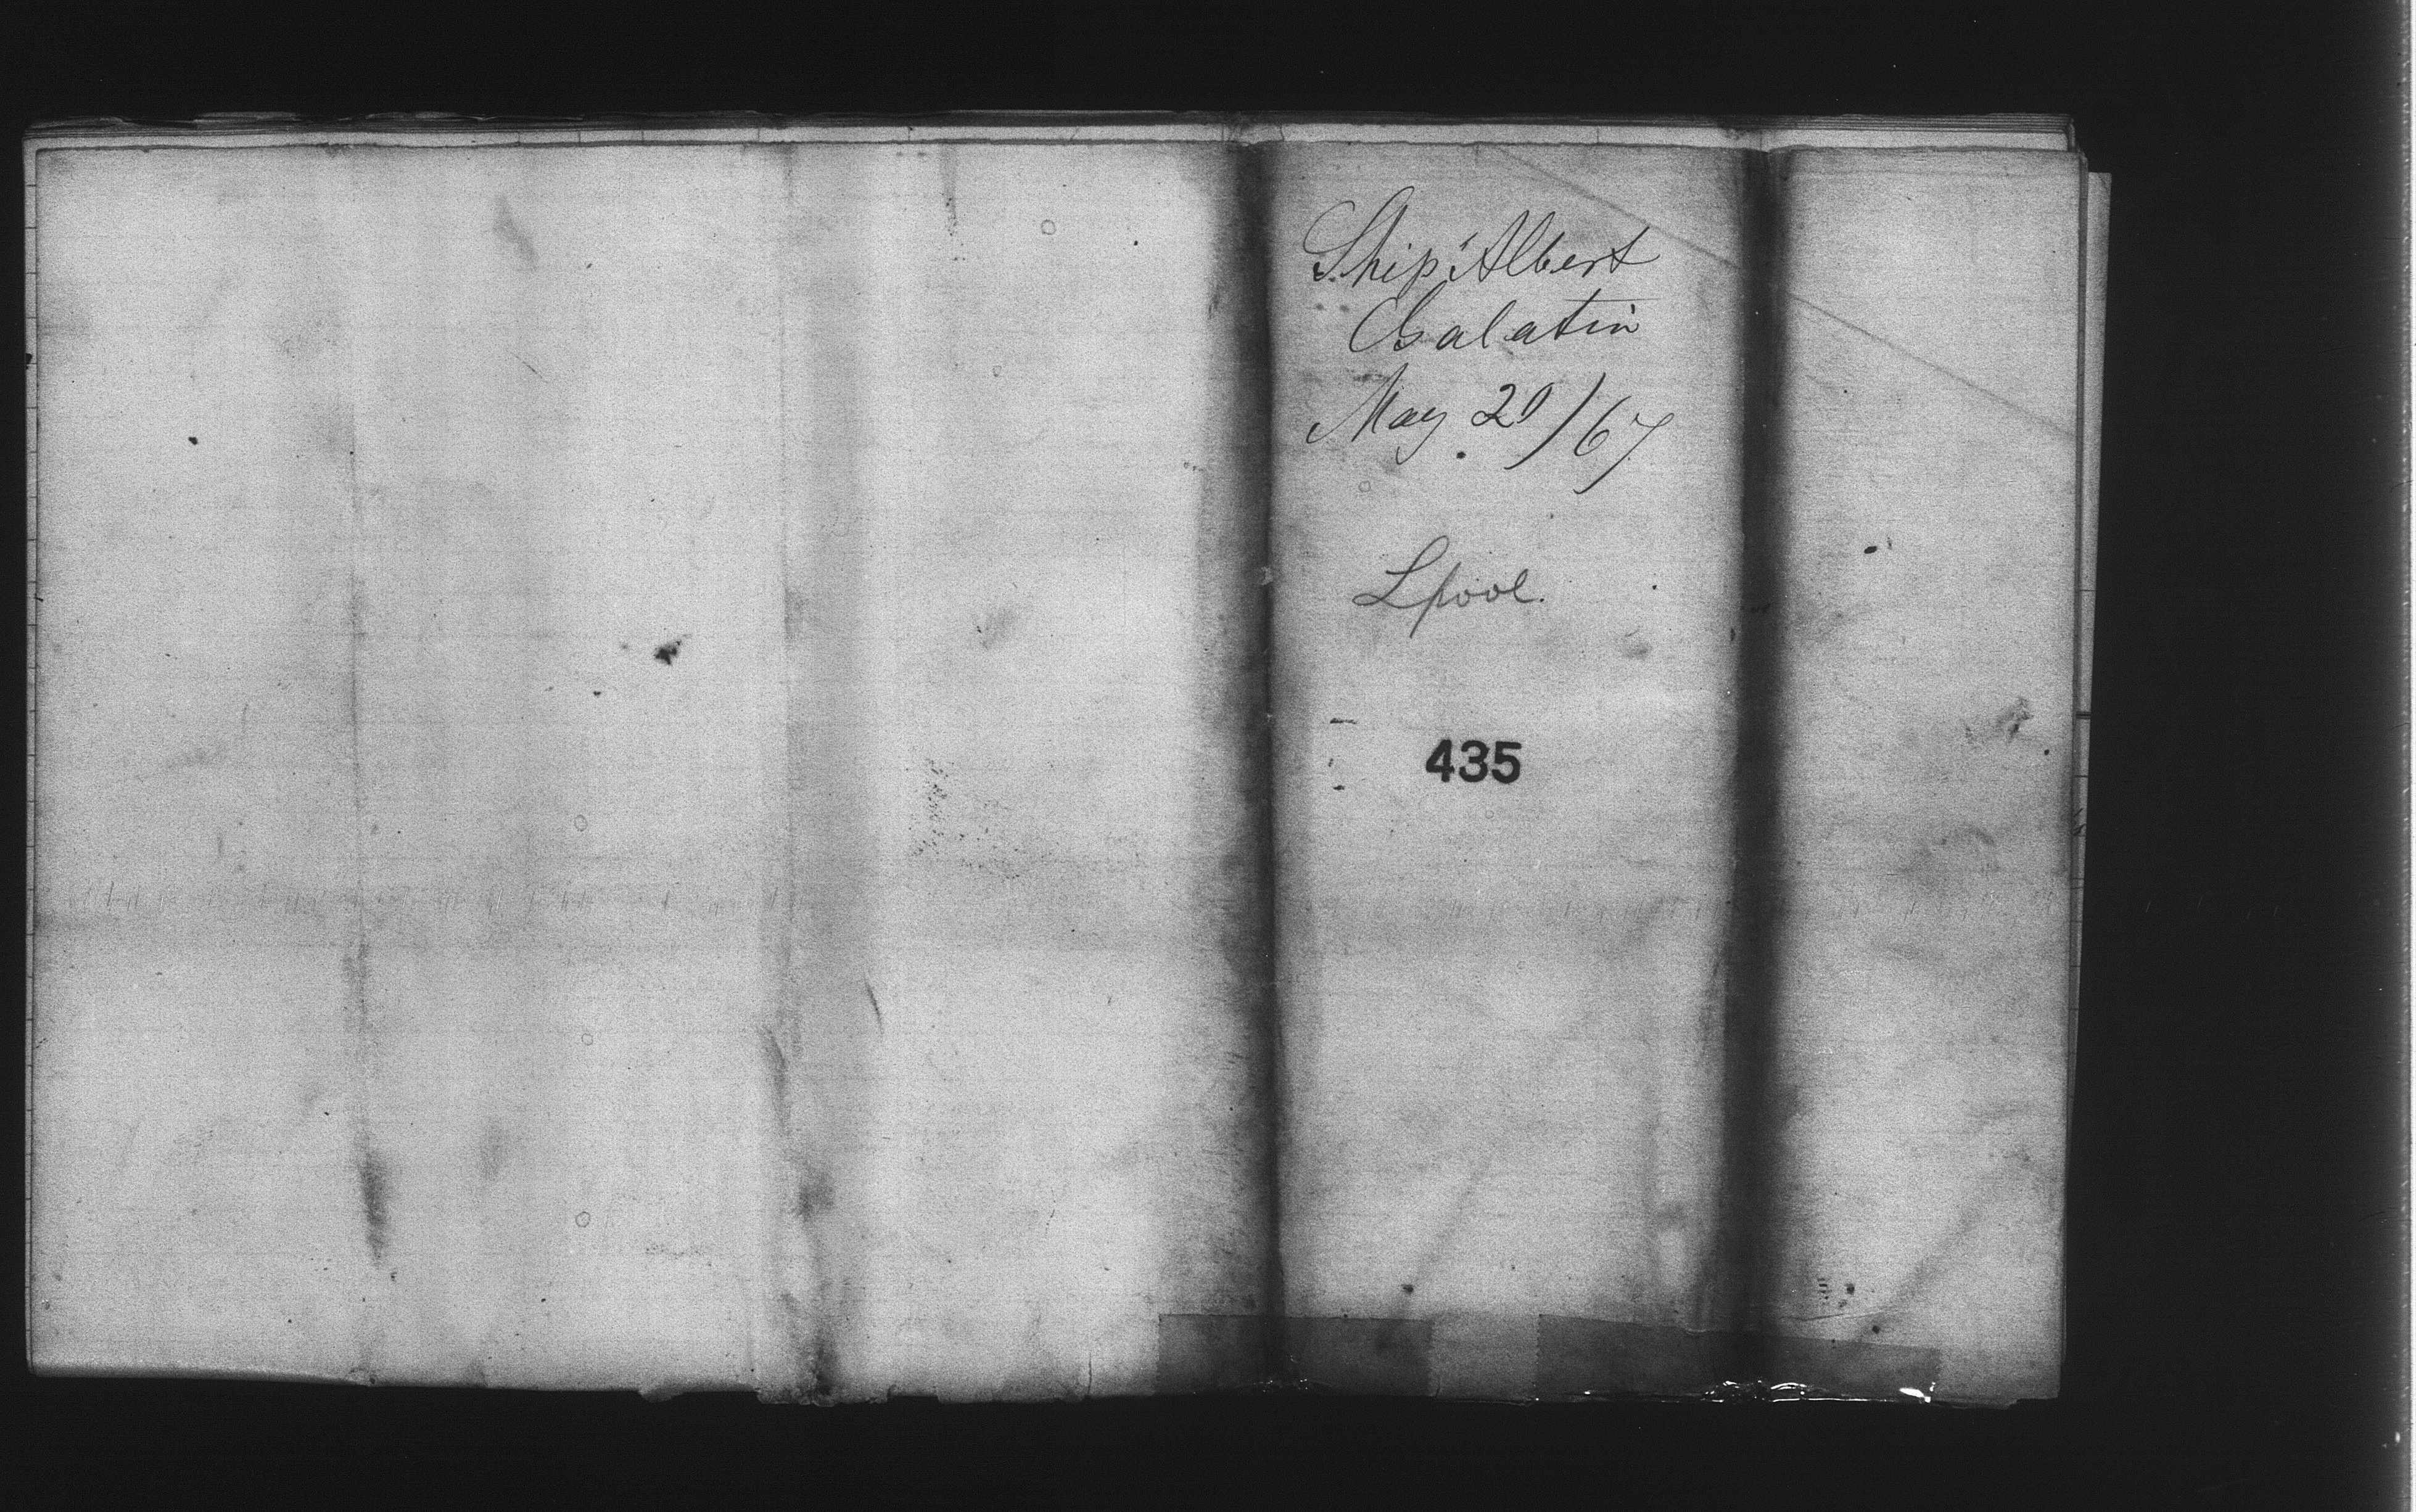 Ship "Albert
Galatin
May 20/67
Lpool.
435